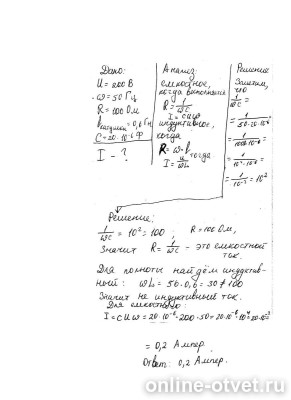 Дано:
U = 200 В
ω = 50 Гц
R = 100 Ом
= 0,6 Гн
C = 20·10⁻⁶ Ф
I - ?
Анализ:
емкостное,
когда выполняется
R = 1/ωC
I = CUω
индуктивное,
когда
R = ω·L
тогда
I = U/ωL
Решение
Заметим,
что
1/ωC =
= 1/50·20·10⁻⁶ =
= 1/1000·10⁻⁶ =
= 1/10³·10⁻⁶ =
= 1/10⁻³ = 10²
Решение:
1/ωC = 10² = 100, R = 100 Ом,
Значит R = 1/ωC - это емкостной
ток.
Для полноты найдём индуктив-
ный: ωL = 50·0,6 = 30 ≠ 100
Значит не индуктивный ток.
Для емкостного:
I = CUω = 20·10⁻⁶·200·50 = 20·10⁻⁶·10⁴ = 20·10⁻²
= 0,2 Ампер.
Ответ: 0,2 Ампер.
online-otvet.ru